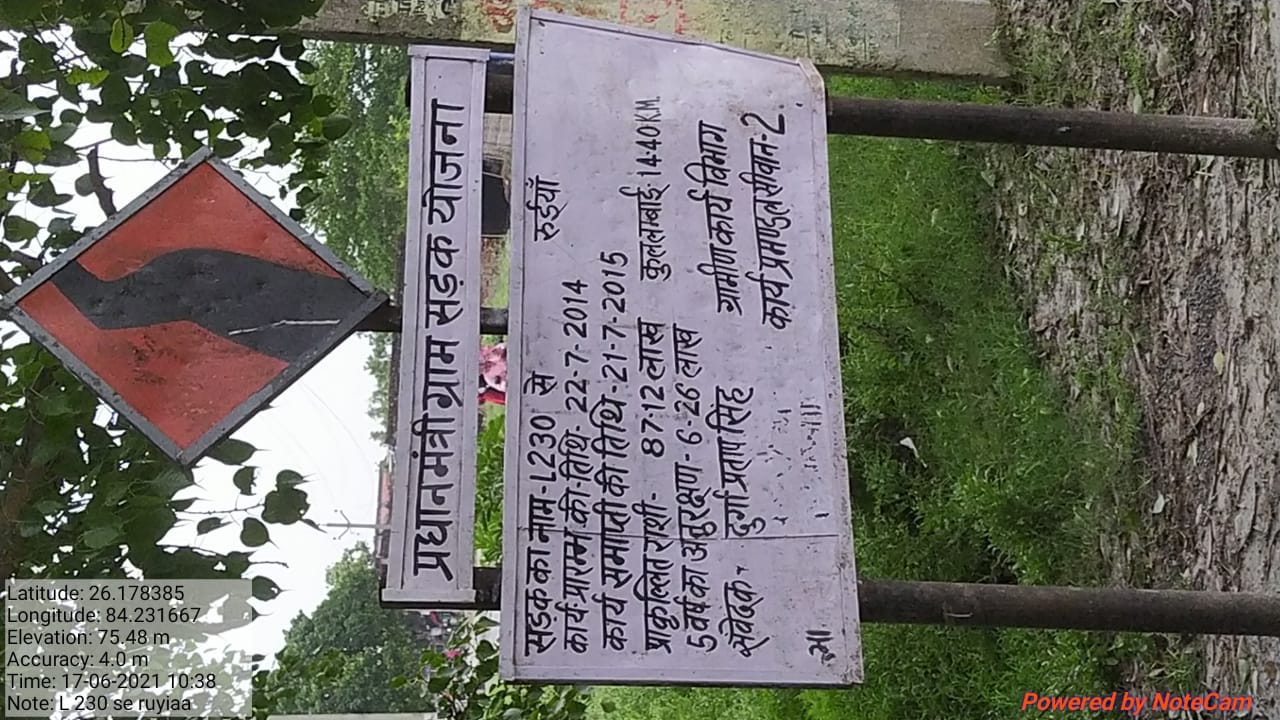 प्रधानमंत्री ग्राम सड़क योजना
सड़क का नाम-L230 से रुईयाँ
कार्य प्रारम्भ की-तिथि- 22-7-2014
कार्य समाप्ती की तिथि-21-7-2015
प्राकुल्लित राशी- 87.12 लाख कुललम्बाई 1.440 K.M.
5 वर्ष का अनुरक्षण - 6.26 लाख ग्रामीण कार्य विभाग
संवेदक- दुर्गा प्रताप सिंह कार्य प्रमण्डल सीवान-2.
Latitude: 26.178385
Longitude: 84.231667
Elevation: 75.48 m
Accuracy: 4.0 m
Time: 17-06-2021 10:38
Note: L 230 se ruyiaa
Powered by NoteCam